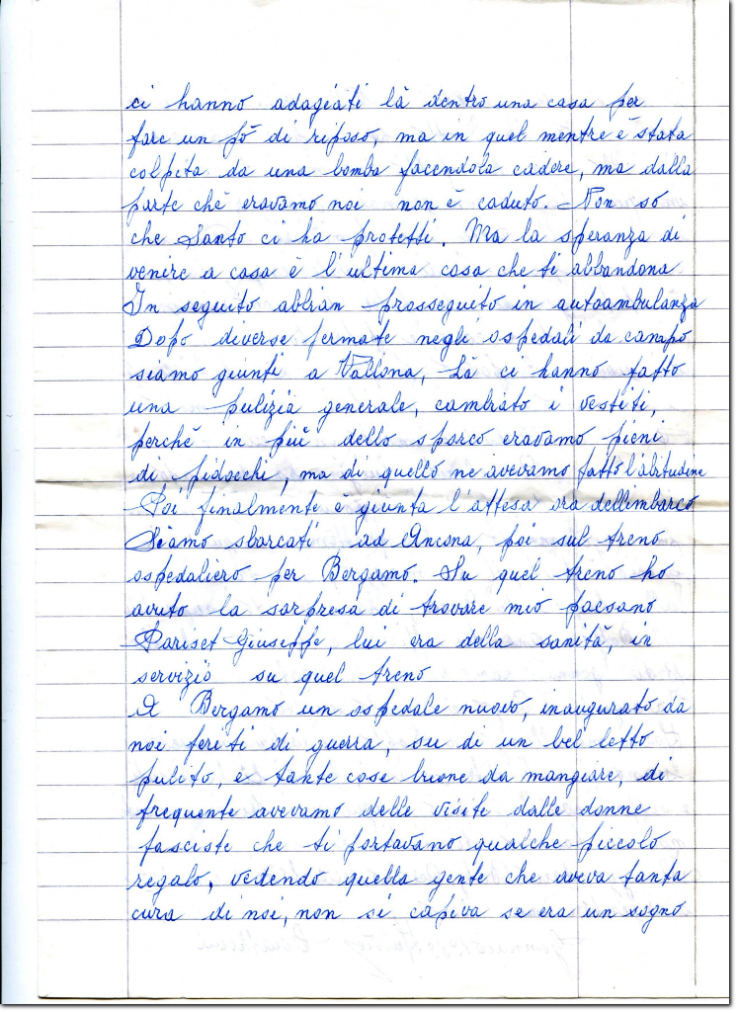 ci hanno adagiati là dentro una casa per
fare un pò di riposo, ma in quel mentre è stata
colpita da una bomba facendola cadere, ma dalla
parte chè eravamo noi non è caduto. Non so
che Santo ci ha protetti. Ma la speranza di
venire a casa è l'ultima cosa che ti abbandona
In seguito abbian prosseguito in autoambulanza
Dopo diverse fermate negli ospedali da campo
siamo giunti a Vallona, Là ci hanno fatto
una pulizia generale, cambiato i vestiti,
perchè in più dello sporco eravamo pieni
di pidocchi, ma di quello ne avevamo fatto l'abitudine
Poi finalmente è giunta l'attesa ora dellimbarco
Siamo sbarcati ad Ancona, poi sul treno
ospedaliero per Bergamo. Su quel treno ho
avuto la sorpresa di trovare mio paesano
Pariset Giuseppe, lui era della sanità, in
servizio su quel treno
A Bergamo un ospedale nuovo, inaugurato da
noi feriti di guerra, su di un bel letto
pulito, e tante cose buone da mangiare, di
frequente avevamo delle visite dalle donne
fasciste che ti portavano qualche piccolo
regalo, vedendo quella gente che aveva tanta
cura di noi, non si capiva se era un sogno